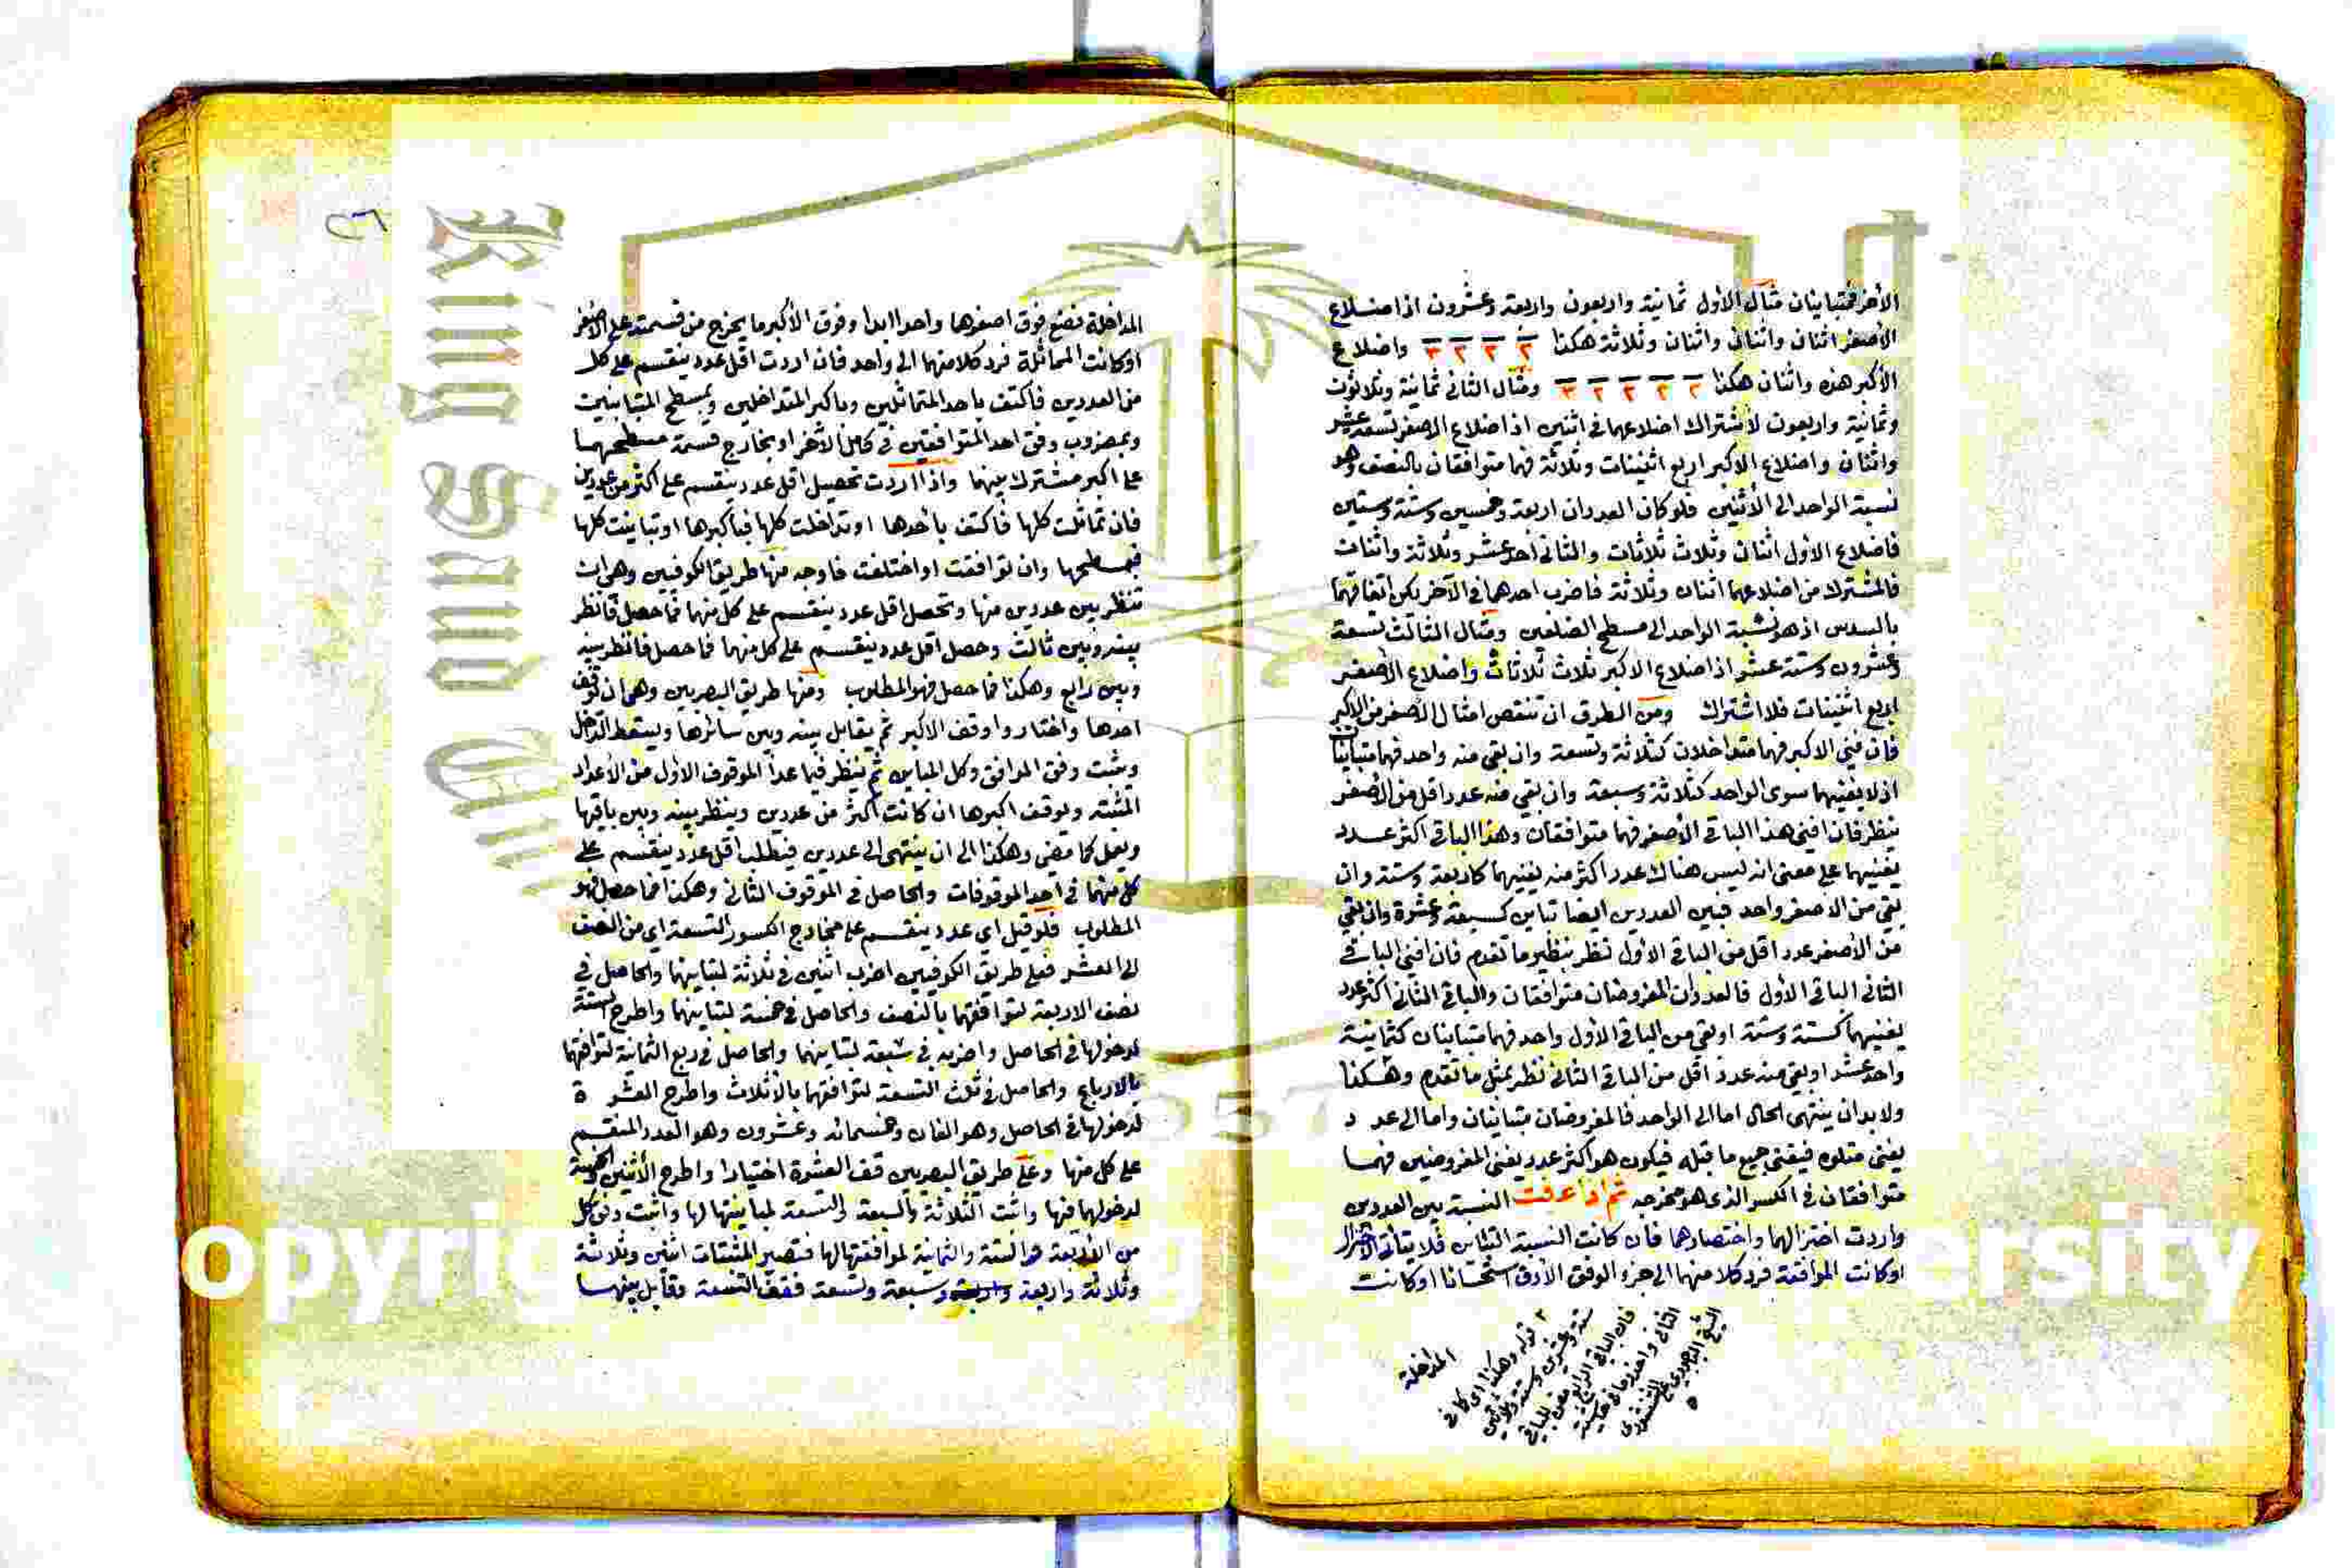 الأخر فمتباينان مثال الأول ثمانية واربعون واربعة وعشرون اذ اضلاع
الأصغر اثنان واثنان واثنان وثلاثة هكذا ٢ ٢ ٢ ٣ واضلاع
الأكبر هذه واثنان هكذا ٢ ٢ ٢ ٢ ٣ ومثال الثاني ثمانية وثلاثون
وثمانية واربعون لاشتراك اضلاعهما في اثنين اذ اضلاع الاصغر تسعة عشر
واثنان واضلاع الاكبر اربع اثنينات وثلاثة فهما متوافقان بالنصف وهو
نسبة الواحد الى الأثنين فلو كان العددان اربعة وخمسين وستة وستين
فاضلاع الأول اثنان وثلاث ثلاثات والثاني أحد عشر وثلاثة واثنان
فالمشترك من اضلاعهما اثنان وثلاثة فاضرب احدهما في الآخر يكن اتفاقهما
بالسدس اذ هو نسبة الواحد الى مسطح الضلعين ومثال الثالث تسعة
وعشرون وستة عشر اذ اضلاع الاكبر ثلاث ثلاثات واضلاع الأصغر
اربع اثنينات فلا اشتراك ومن الطرق ان تنقص امثال الأصغر من الاكبر
فان فني الاكبر فهما متداخلان كثلاثة وتسعة وان بقي منه واحد فهما متباينان
اذ لا يفنيهما سوى الواحد كثلاثة وسبعة وان بقي منه عدد اقل من الأصغر
ينظر فان افنى هذا الباقي الأصغر فهما متوافقان وهذا الباقي اكثر عدد
يفنيهما على معنى انه ليس هناك عدد اكثر منه يفنيهما كاربعة وستة وان
بقي من الاصغر واحد فبين العددين ايضا تباين كسبعة وعشرة وان بقي
من الأصغر عدد اقل من الباقي الأول نظر بنظير ما تقدم فان افنى الباقي
الثاني الباقي الأول فالعددان المفروضان متوافقان والباقي الثاني اكثر عدد
يفنيهما كستة وستة او بقي من الباقي الأول واحد فهما متباينان كثمانية
واحد عشر او بقي منه عدد اقل من الباقي الثاني نظر بمثل ما تقدم وهكذا
ولا بد ان ينتهى الحال اما الى الواحد فالمفروضان متباينان واما الى عدد
يفنى متلوه فيفنى جميع ما قبله فيكون هو اكثر عدد يفنى المفروضين فهما
متوافقان في الكسر الذي هو مخرجه ثم اذا عرفت النسبة بين العددين
واردت اختزالهما واختصارهما فان كانت النسبة التباين فلا يتأتى الاختزال
او كانت الموافقة فرد كلا منهما الى جزء الوفق الأدق استحسانا او كانت
المداخلة
٢ قوله وهكذا اى كما في
ستة وعشرين وستة وثلاثين
فان الباقي الرابع
المداخلة فضع فوق اصغرها واحدا ابدا وفوق الأكبر ما يخرج من قسمته على الأصغر
او كانت المماثلة فرد كلا منهما الى واحد فان اردت اقل عدد ينقسم على كل
من العددين فاكتف باحد المتماثلين وباكبر المتداخلين وبمسطح المتباينين
وبمضروب وفق احد المتوافقين في كامل الأخر او بخارج قسمة مسطحهما
على اكبر مشترك بينهما واذا اردت تحصيل اقل عدد ينقسم على اكثر من عددين
فان تماثلت كلها فاكتف باحدها او تداخلت كلها فباكبرها او تباينت كلها
فبمسطحها وان توافقت او اختلفت فاوجه منها طريق الكوفيين وهى ان
تنظر بين عددين منها وتحصل اقل عدد ينقسم على كل منهما فما حصل فانظر
بينه وبين ثالث وحصل اقل عدد ينقسم على كل منهما فما حصل فانظر بينه
وبين رابع وهكذا فما حصل فهو المطلوب ومنها طريق البصريين وهى ان توقف
احدها واختاروا وقف الاكبر ثم يقابل بينه وبين سائرها ويسقط الداخل
ويثبت وفق الموافق وكل المباين ثم ينظر فيما عدا الموقوف الاول من الأعداد
المثبتة ويوقف اكبرها ان كانت أكثر من عددين وينظر بينه وبين باقيها
ويعمل كما مضى وهكذا الى ان ينتهى الى عددين فيطلب اقل عدد ينقسم على
كل منهما في احد الموقوفات والحاصل في الموقوف الثاني وهكذا فما حصل فهو
المطلوب فلو قيل اي عدد ينقسم على مخارج الكسور التسعة اي من النصف
الى العشر فعلى طريق الكوفيين اضرب اثنين في ثلاثة لتباينهما والحاصل في
نصف الاربعة لتوافقهما بالنصف والحاصل في خمسة لتباينهما واطرح الستة
لدخولها في الحاصل واضربه في سبعة لتباينهما والحاصل في ربع الثمانية لتوافقهما
بالارباع والحاصل في ثلث التسعة لتوافقهما بالأثلاث واطرح العشرة
لدخولها في الحاصل وهو الفان وخمسمائه وعشرون وهو العدد المنقسم
على كل منها وعلى طريق البصريين قف العشرة اختيارا واطرح الأثنين والخمسة
لدخولهما فيها واثبت الثلاثة والسبعة والتسعة لمباينتها لها واثبت وفق كل
من الأربعة والستة والثمانية لموافقتها لها فتصير المثبتات اثنين وثلاثة
وثلاثة واربعة وسبعة وتسعة فقف التسعة وقابل بينها
٢٦